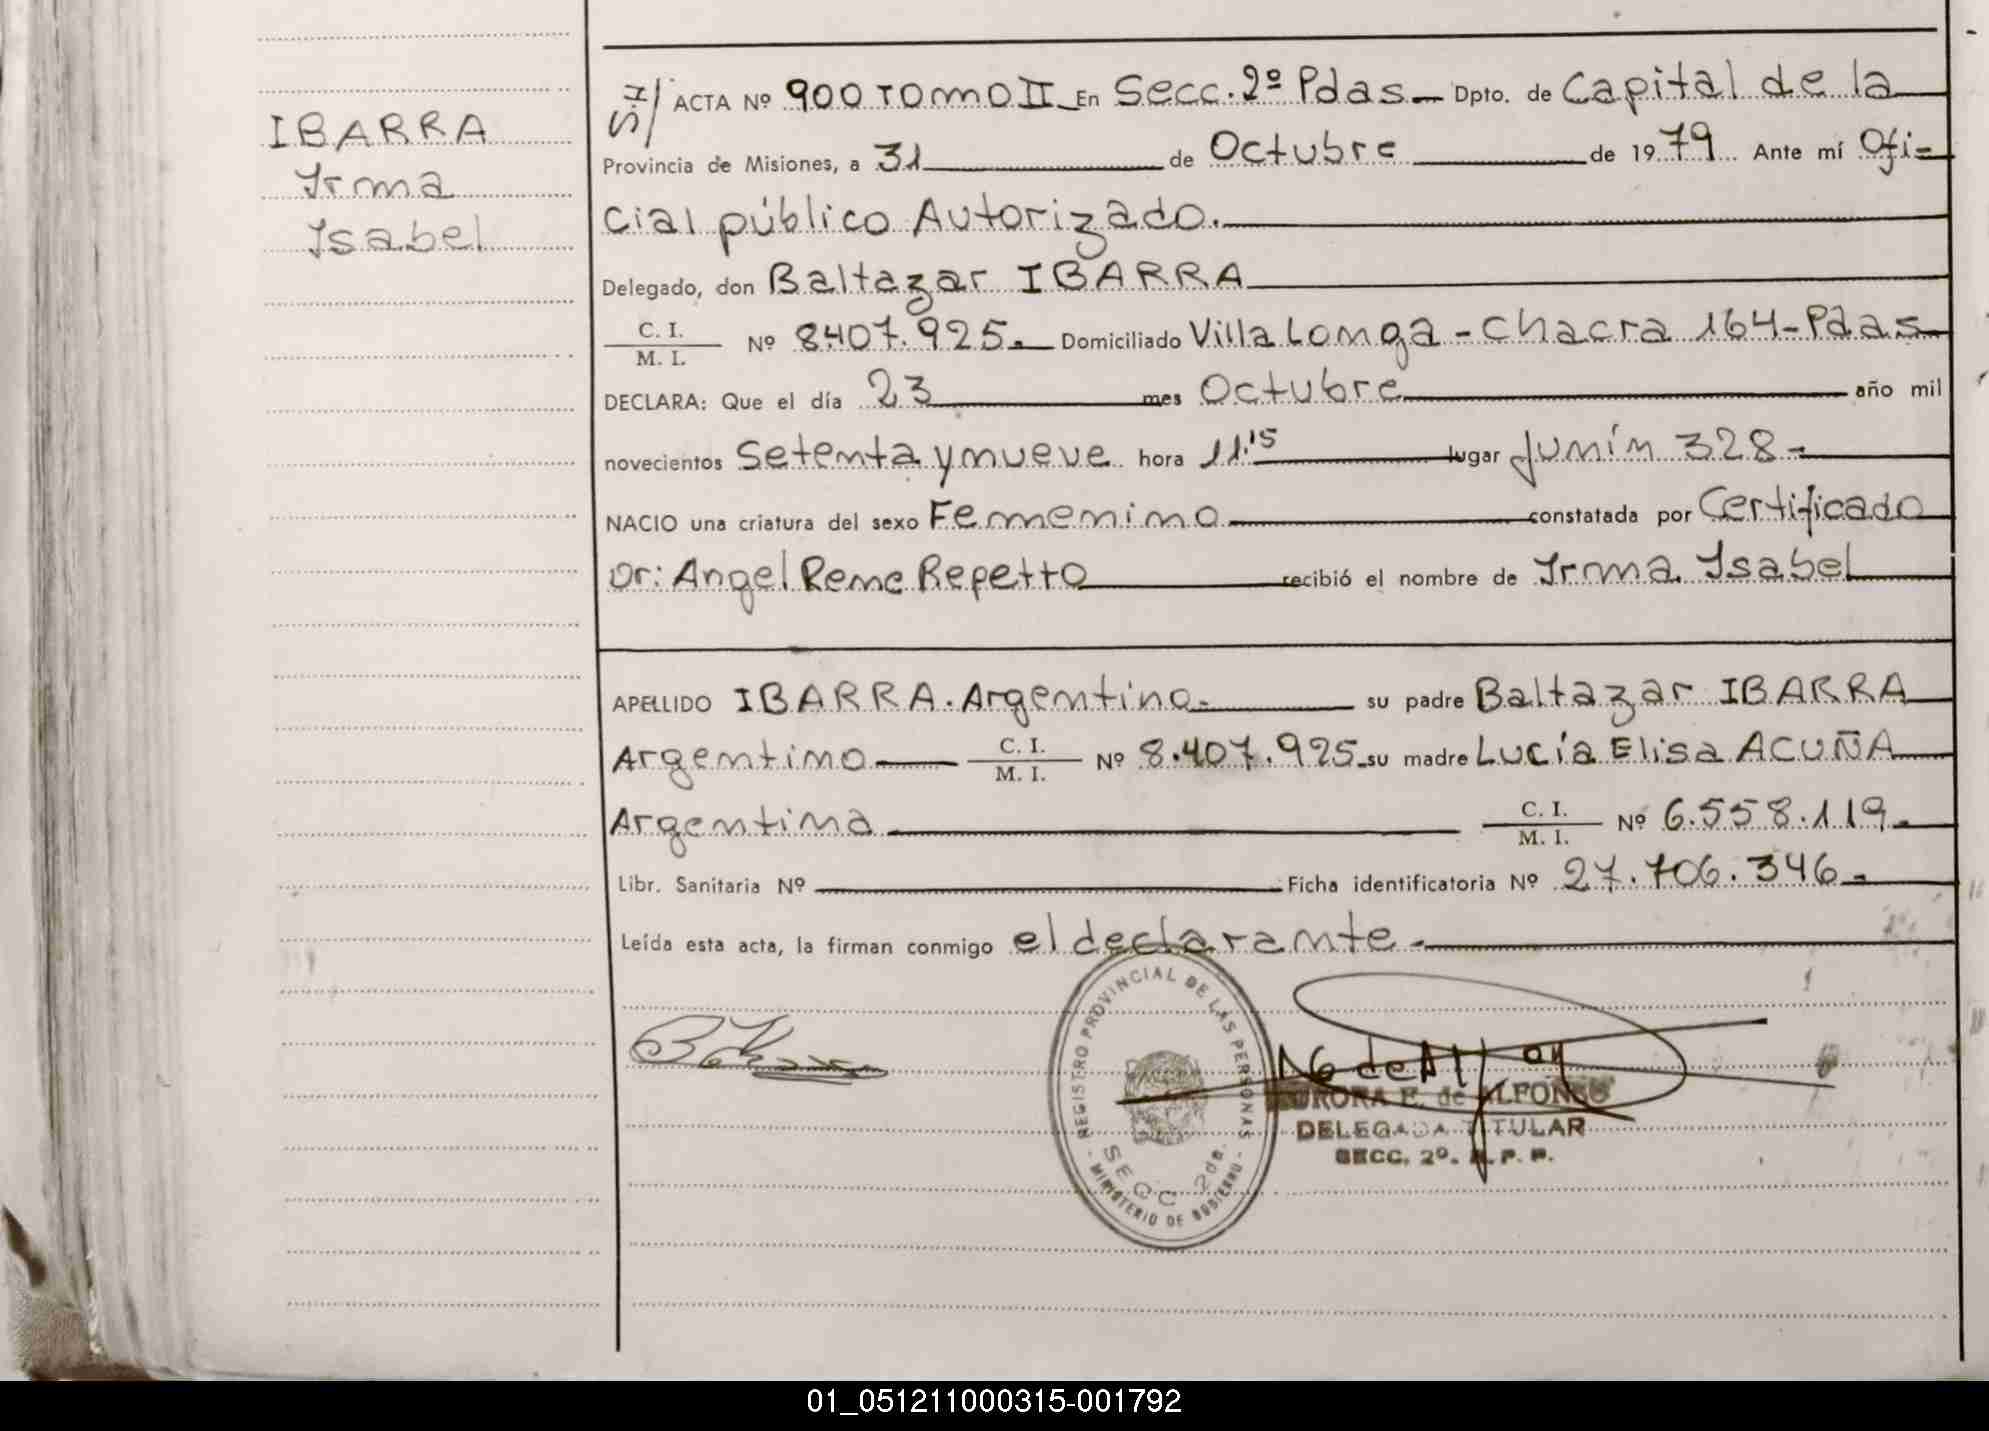 IBARRA
Irma
Isabel
S.I/ ACTA Nº 900 TOMO II En Secc. 2º Pdas Dpto. de Capital de la
Provincia de Misiones, a 31 de Octubre de 1979. Ante mí Ofi=
cial público Autorizado.
Delegado, don Baltazar IBARRA
C. I.
M. I. Nº 8407.925. Domiciliado Villa Longa - Chacra 164 - Pdas
DECLARA: Que el día 23 mes Octubre año mil
novecientos Setenta y nueve hora 11.15 lugar Junín 328-
NACIO una criatura del sexo Femenino constatada por Certificado
Dr: Angel Rene Repetto recibió el nombre de Irma Isabel
APELLIDO IBARRA. Argentino. su padre Baltazar IBARRA
Argentino C. I.
M. I. Nº 8.407.925 su madre Lucía Elisa ACUÑA
Argentina C. I.
M. I. Nº 6.558.119.
Libr. Sanitaria Nº Ficha identificatoria Nº 27.706.346.
Leída esta acta, la firman conmigo el declarante.
REGISTRO PROVINCIAL DE LAS PERSONAS
SECC 2da.
- MINISTERIO DE GOBIERNO -
de ALFONSO
DELEGADA TITULAR
SECC. 2º.
01_051211000315-001792